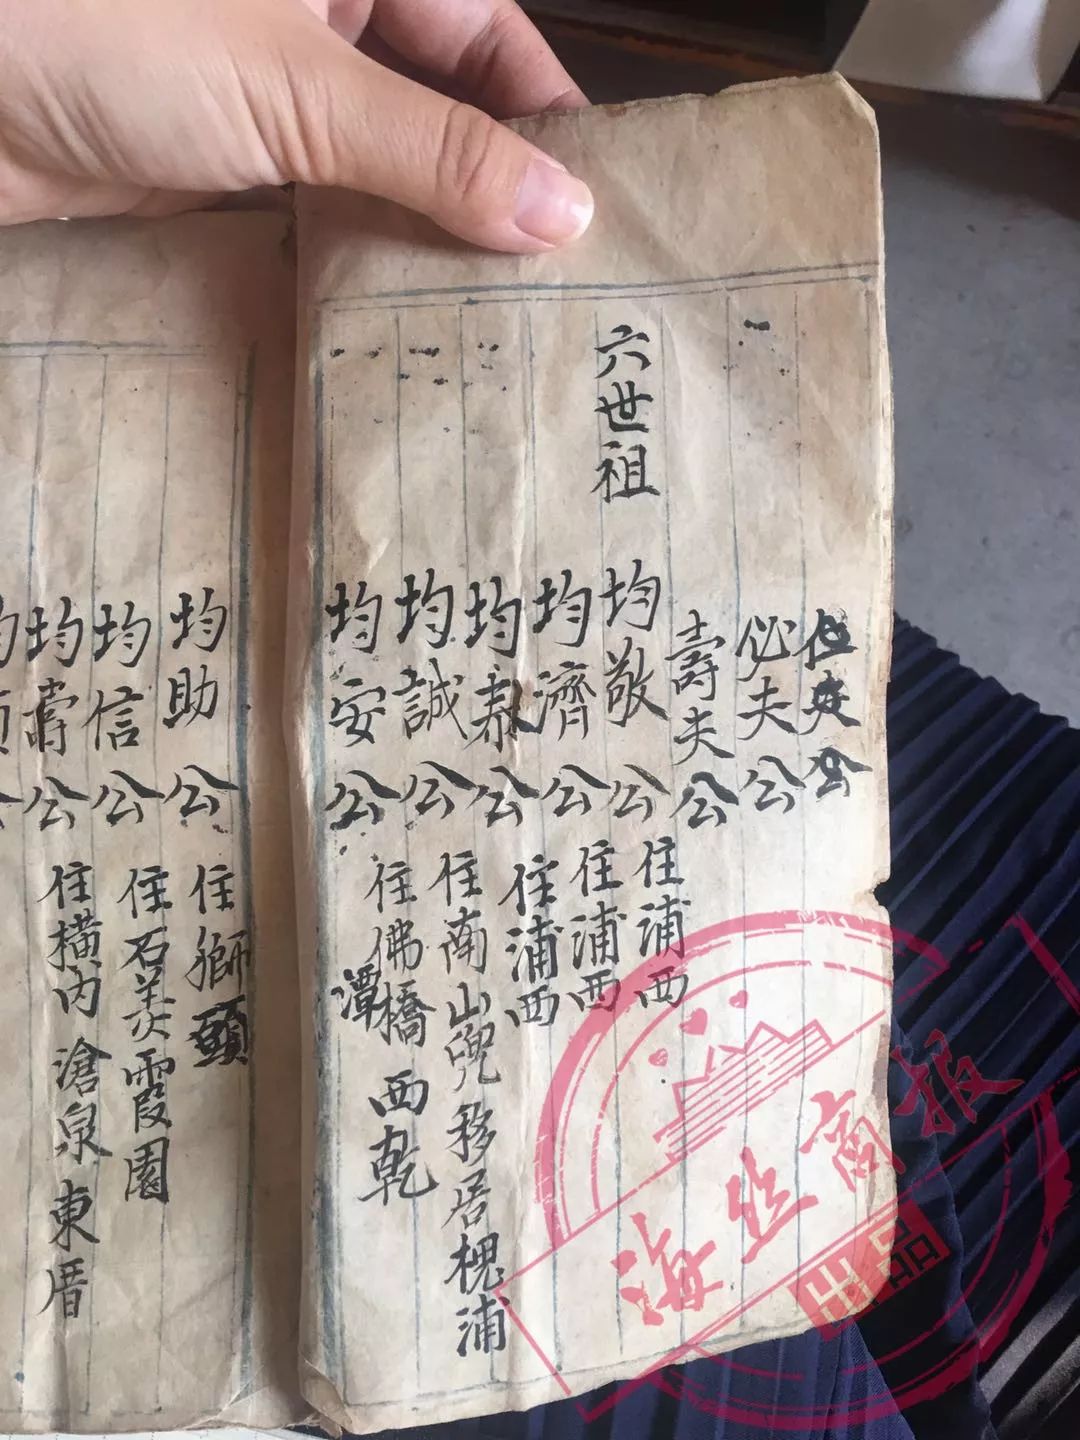 必夫公
壽夫公
六世祖
均敬公 住浦西
均濟公 住浦西
均泰公 住浦西
均誠公 住南山兜移居槐浦
均安公 住佛橋 西乾
潭
均助公 住獅頭
均信公 住石美霞園
均壽公 住橫內 滄泉 東厝
海丝商报
出品